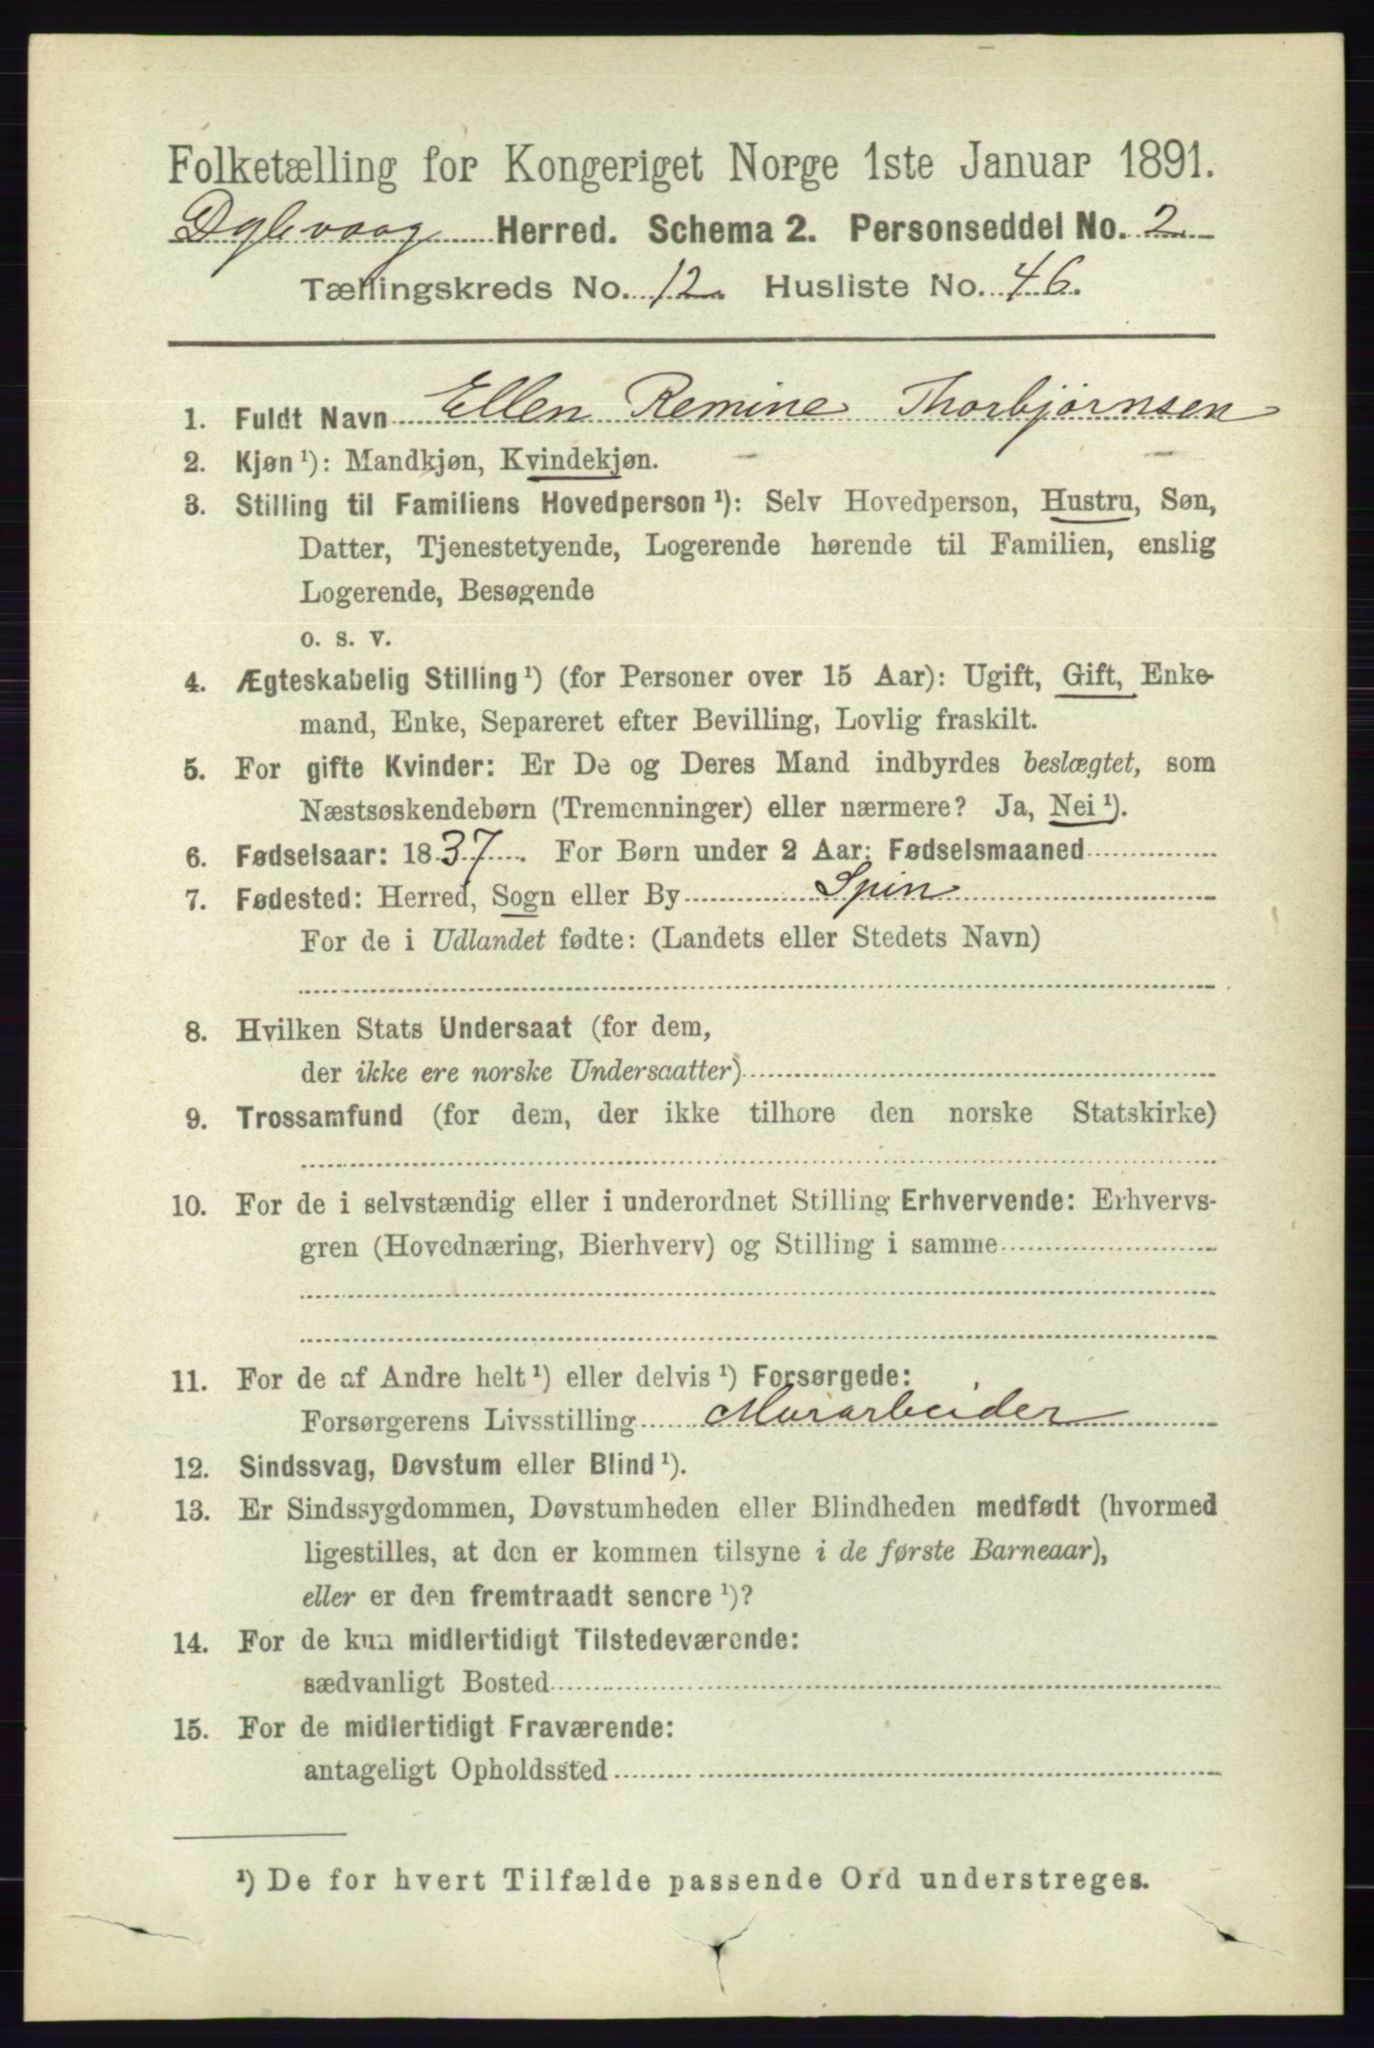 Folketælling for Kongeriget Norge 1ste Januar 1891.
Dybvaag Herred. Schema 2. Personseddel No. 2
Tællingskreds No. 12. Husliste No. 46.
1. Fuldt Navn Ellen Remine Thorbjørnsen
2. Kjøn ¹): Mandkjøn, Kvindekjøn.
3. Stilling til Familiens Hovedperson ¹): Selv Hovedperson, Hustru, Søn,
Datter, Tjenestetyende, Logerende hørende til Familien, enslig
Logerende, Besøgende
o. s. v.
4. Ægteskabelig Stilling ¹) (for Personer over 15 Aar): Ugift, Gift, Enke-
mand, Enke, Separeret efter Bevilling, Lovlig fraskilt.
5. For gifte Kvinder: Er De og Deres Mand indbyrdes beslægtet, som
Næstsøskendebørn (Tremenninger) eller nærmere? Ja, Nei ¹).
6. Fødselsaar: 1837. For Børn under 2 Aar: Fødselsmaaned
7. Fødested: Herred, Sogn eller By Spin
For de i Udlandet fødte: (Landets eller Stedets Navn)
8. Hvilken Stats Undersaat (for dem,
der ikke ere norske Undersaatter)
9. Trossamfund (for dem, der ikke tilhøre den norske Statskirke)
10. For de i selvstændig eller i underordnet Stilling Erhvervende: Erhvervs-
gren (Hovednæring, Bierhverv) og Stilling i samme
11. For de af Andre helt ¹) eller delvis ¹) Forsørgede:
Forsørgerens Livsstilling Murarbeider
12. Sindssvag, Døvstum eller Blind ¹).
13. Er Sindssygdommen, Døvstumheden eller Blindheden medfødt (hvormed
ligestilles, at den er kommen tilsyne i de første Barneaar),
eller er den fremtraadt senere ¹)?
14. For de kun midlertidigt Tilstedeværende:
sædvanligt Bosted
15. For de midlertidigt Fraværende:
antageligt Opholdssted
¹) De for hvert Tilfælde passende Ord understreges.